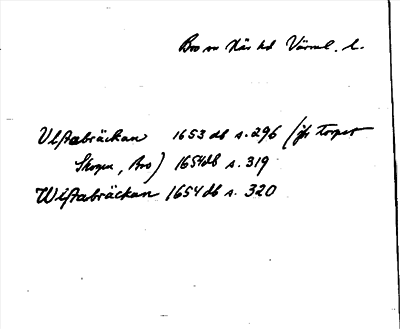 Bro sn Näs hd Värml. l.
Ulftabräckan 1653 db s. 296 (jfr torpet
Skogen, Bro) 1654 db s. 319
Wiftabräckan 1654 db s. 320